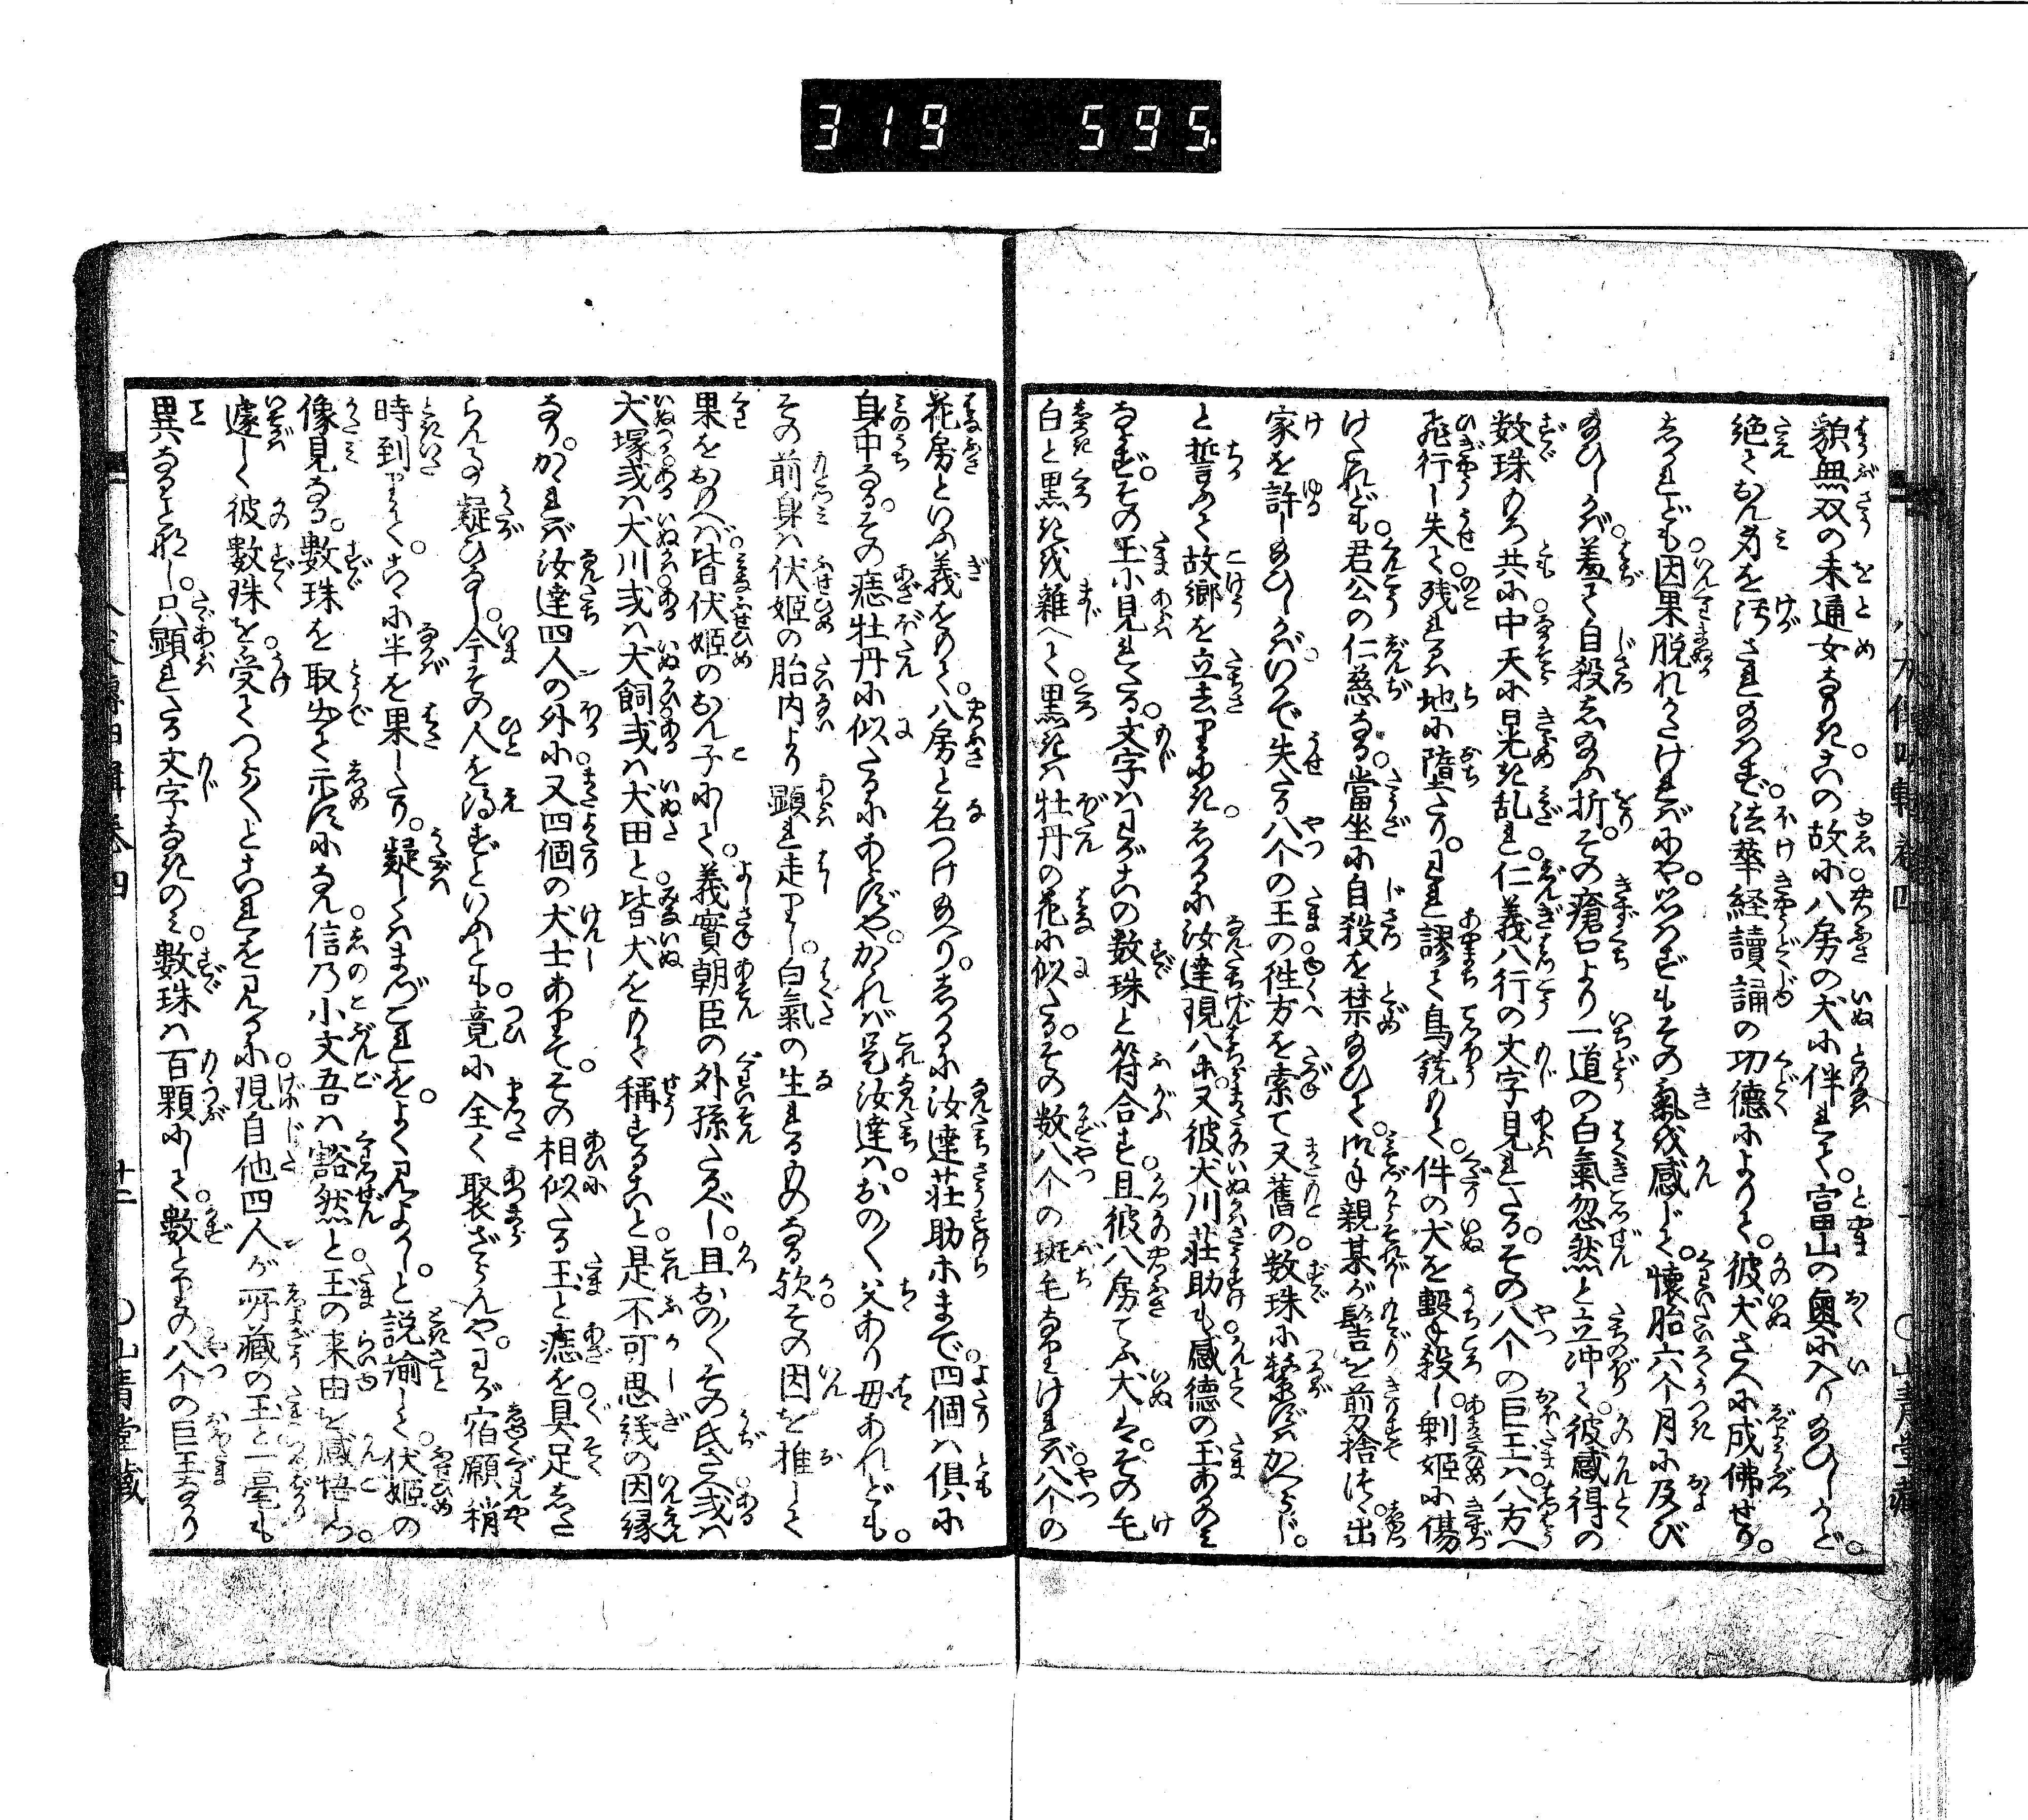 319 595
貌無双の未通女なりき。この故に八房の犬に伴れて。富山の奥に入り給ひしかど。
絶ておん身を汚され給はず。法華経讀誦の功德によりて。彼犬さへに成佛せり。
しかれども因果脱れがたければにや。思はずもその氣を感じて。懐胎六个月に及び
給ひしかば。羞て自殺し給ふ折。その瘡口より一道の白氣忽然と立沖て。彼感得の
数珠もろ共に中天に晃き乱れ。仁義八行の文字見れたる。その八个の巨玉は。八方へ
飛行し失て。残れるは地に墮たり。われ謬て鳥銃もて。件の犬を轂殺し。剰姫に傷
けたれども。君公の仁慈なる。當坐に自殺を禁め給ひて。み手親某が髻を剪捨つ。出
家を許し給ひしかば。いかで失たる八个の玉の徃方を索て又舊の。数珠に繋ずばかへらじ。
と誓ふて故郷を立去りにき。しかるに汝達現八等。又彼犬川荘助も感德の玉あるのみ
ならず。その玉に見れたる。文字はわがこの数珠と符合せり且彼八房てふ犬は。その毛
白と黒きを雑へて。黒きは牡丹の花に似たる。その数八个の斑毛なりければ。八个の
花房といふ義をもて。八房と名つけ給へり。しかるに汝達荘助等まで。四個は倶に
身中なる。その痣牡丹に似たるにあらずや。かかれば是汝達は。おの〳〵父あり母あれども。
その前身は伏姫の胎内より顕れ走りし。白氣の生れるものなる歟。その因を推して
果をおもへば。皆伏姫のおん子にして。義實朝臣の外孫たるべし。且おの〳〵その氏さへ。或は
犬塚或は犬川或は犬飼或は犬田と。皆犬をもて稱すること。是不可思議の因縁
なり。かゝれば汝達四人の外に。又四個の犬士ありて。その相似たる玉と痣を具足した
らんこと疑ひなし。今その人を得ずといふとも。竟に全く聚ざらんや。わが宿願稍
時到りて。こゝに半を果したり。疑しくはまづこれを。よく見よかし。と説諭して。伏姫の
像見なる。數珠を取出て示すになん。信乃小文吾は豁然と。玉の来由を感悟しつ。
遽しく彼數珠を。受てつら〳〵とこれを見るに。現自他四人が所藏の玉と一毫も
異なること形し。只顕れたる文字なきのみ。數珠は百顆にして。數とりの八个の巨玉なり
八犬傳四輯卷四
十一
〇山青堂藏
八犬傳四輯卷四
十二
〇山青堂藏